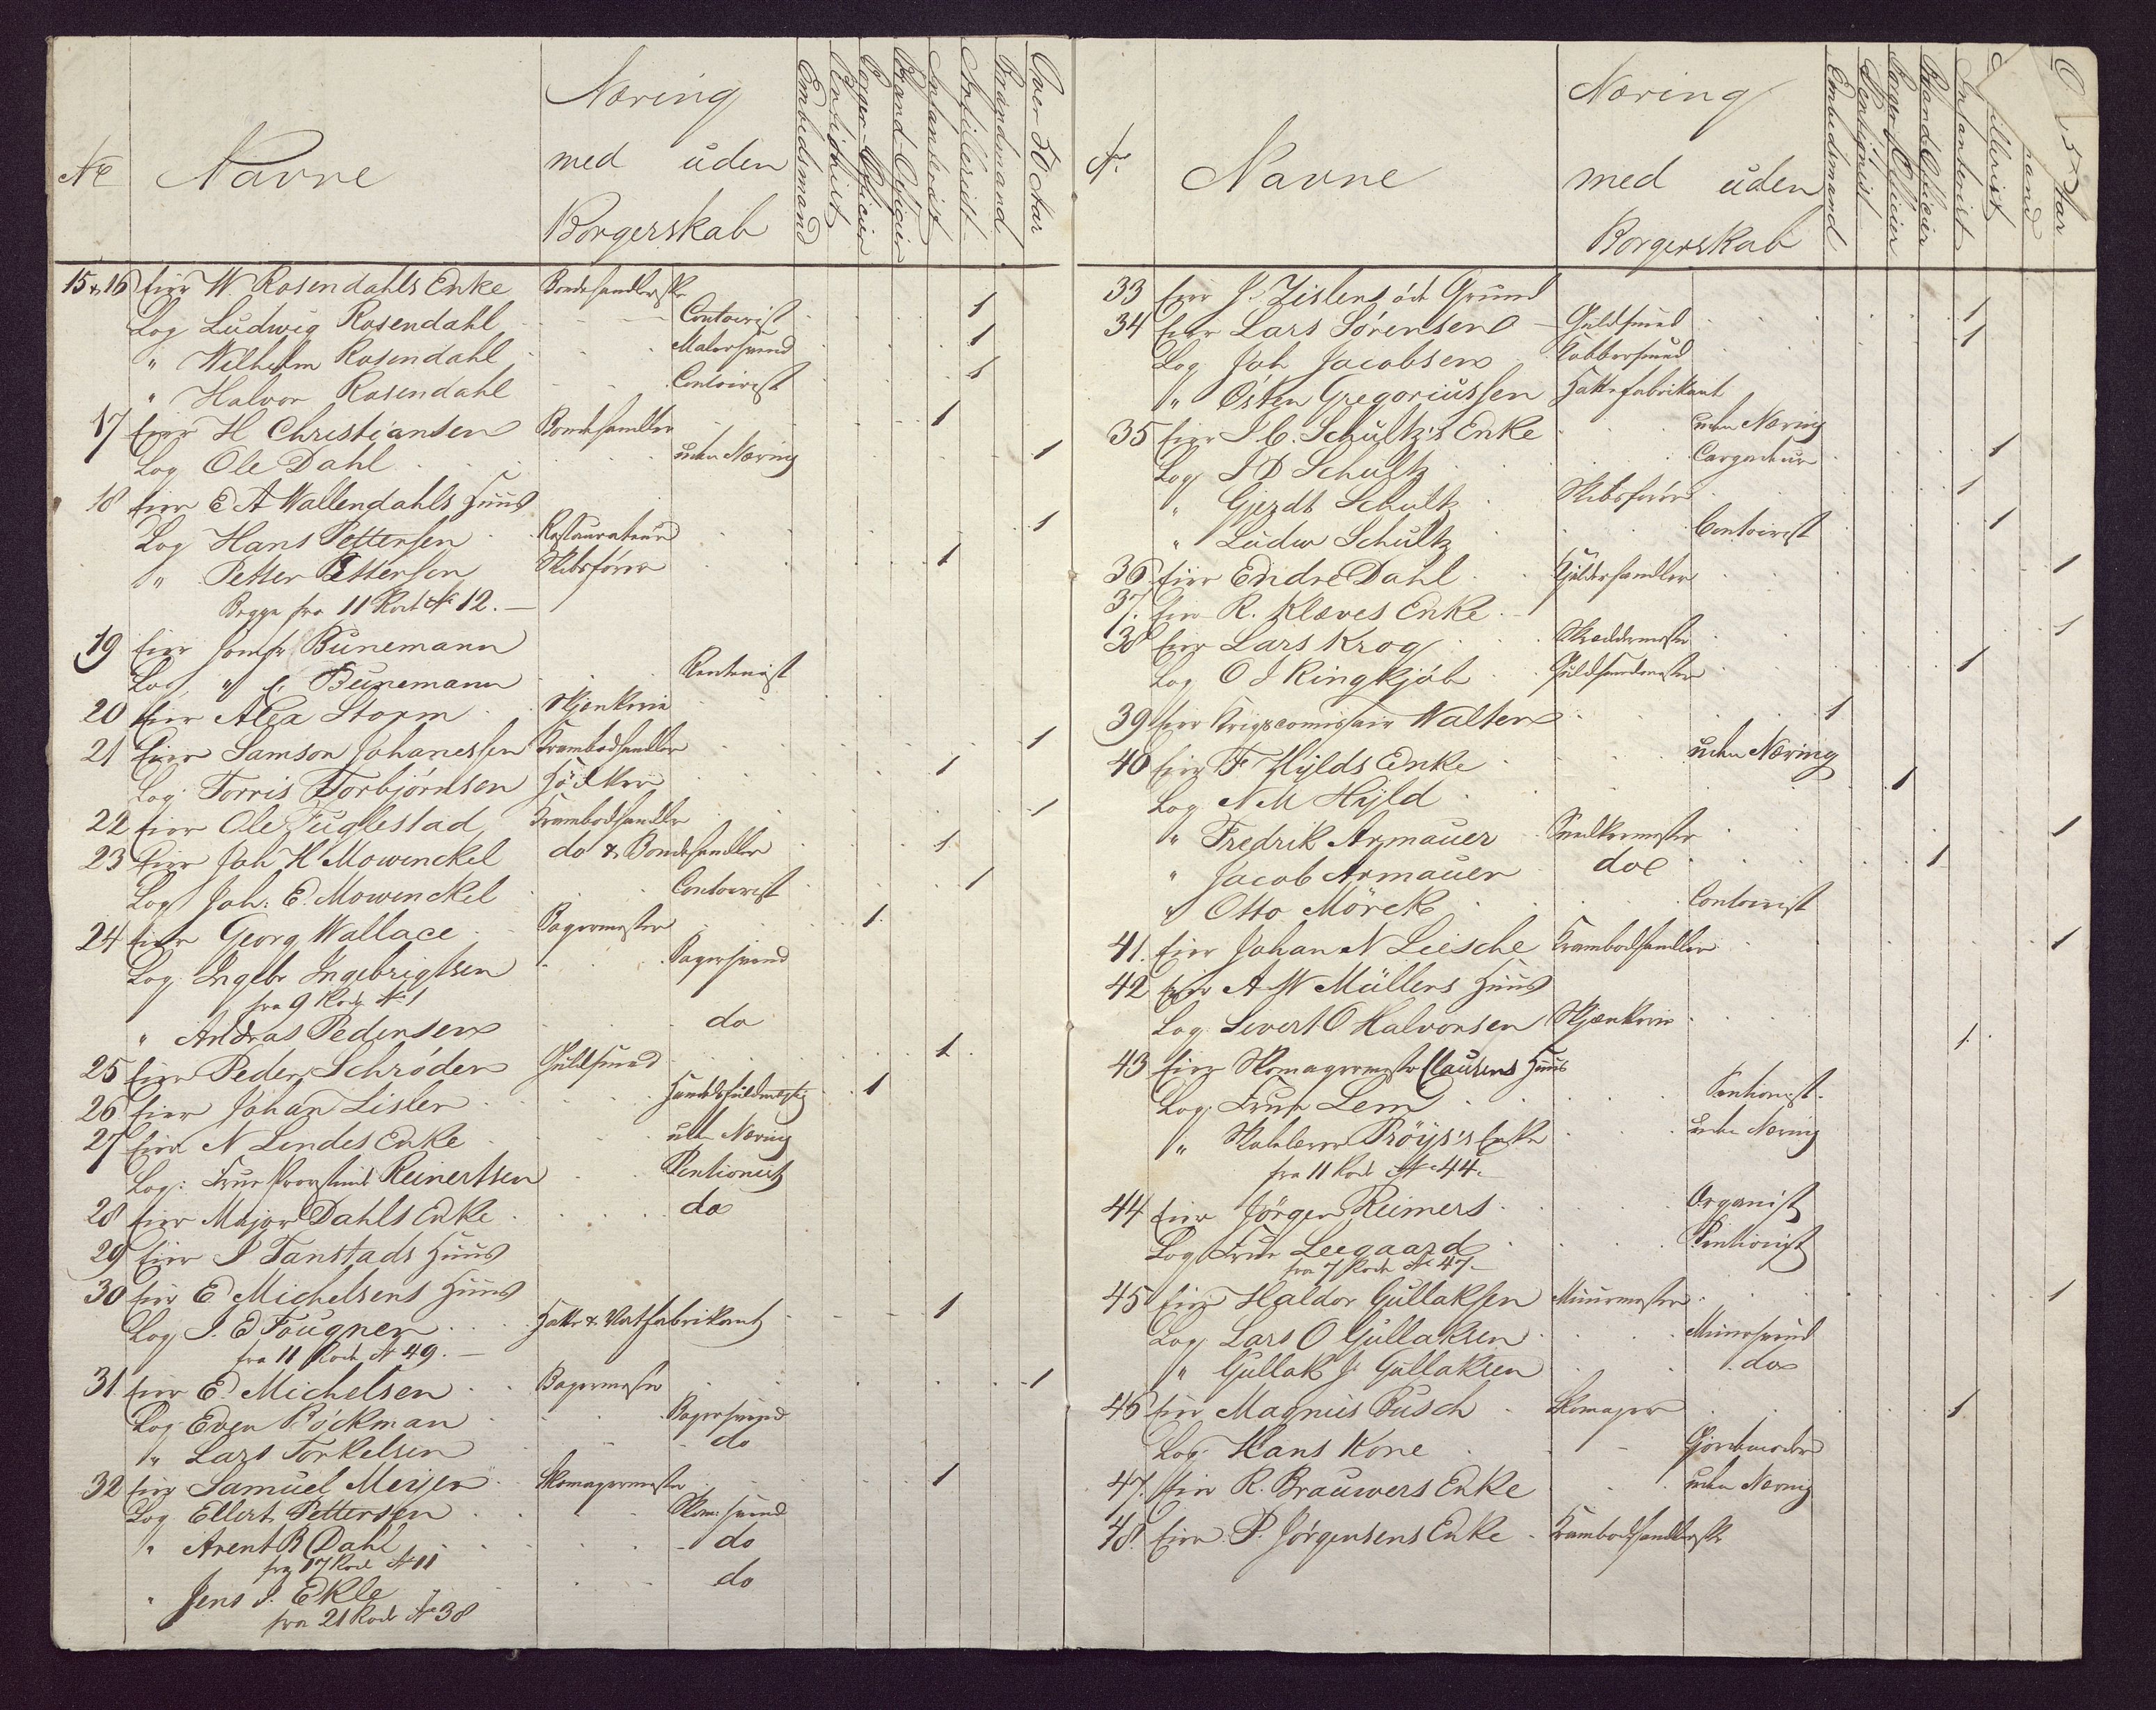 No Navne
Næring
med uden
Borgerskab
Embedsmand
Borger-Officier
Brand-Officier
Infanterist
Artillerist
Brandmand
Over 50 Aar
15 & 16 Eier W. Rosendahls Enke Bondehandlerske
Log Ludwig Rosendahl Contoirist 1
" Wilhelm Rosendahl Malersvend 1
" Halvor Rosendahl Contoirist 1
17 Eier H Christiansen Bondehandler 1
Log Ole Dahl uden Næring 1
18 Eier E A Wallendahls Huus
Log Hans Pettersen Restaurateur 1
" Petter Pettersen Skibsfører 1
Begge fra 11 Rode No 12. —
19 Eier Jomfr Bünemann
Log " C. Bünemann Rentenist
20 Eier Alex Storm Skjenkerie
21 Eier Samson Johanessen Krambodhandler 1
Log Torris Torbjörnsen Hødker 1
22 Eier Ole Fuglestad Krambodhandler 1
23 Eier Joh H Mowinckel do & Bondehandler 1
Log Joh: E. Mowinckel Contoirist 1
24 Eier Georg Wallace Bagermester 1
Log Ingebr Ingebrigtsen Bagersvend
fra 9 Rode No 1
" Andras Pedersen do
25 Eier Peder Schröder Guldsmed 1
26 Eier Johan Lisler 1
27 Eier N Lindes Enke uden Næring
Log: Frue Reinertsen Pentionist
28 Eier Major Dahls Enke do
29 Eier J Tanstads Huus
30 Eier E Michelsens Huus
Log J. E Fougner Hatte & fabrikant 1
fra 11 Rode No 49. —
31. Eier E. Michelsen Bagermester 1
Log Even Böckman Bagersvend
" Lars Torkelsen do
32 Eier Samuel Meyer Skomagermester 1
Log Ellert Pettersen Skom: svend
" Arent B Dahl do
fra 17 Rode No 11
" Jens J. Ekle do
fra 21 Rode No 38
No Navne
Næring
med uden
Borgerskab
Embedsmand
Borger Officier
Brand Officier
Infanterist
33 Eier J. Zislens øde Grund
34 Eier Lars Sörensen Guldsmed 1
Log Joh Jacobsen Kobbersmed 1
" Östen Gregoriussen Hattefabrikant
35 Eier J C. Schultz's Enke uden Næring
Log J D Schultz Cargadeur 1
" Gjerdt Schultz Skibsfører 1
" Ludw Schultz Contoirist 1
36. Eier Endre Dahl Kjelderhandler 1
37. Eier R. Klæves Enke
38 Eier Lars Krog Skreddermester 1
Log O J Ringkjöb Guldsmedmester 1
39 Eier Krigscomissair Walter 1
40 Eier F Hylds Enke uden Næring
Log N M Hyld 1
" Fredrik Armauer Snedkermester 1
" Jacob Armauer do 1
" Otto Mörck Contoirist
41. Eier Johan N Liesche Krambodhandler 1
42 Eier A W Müllers Huus
Log Sivert O Halvorsen Skjænkerie 1.
43 Eier Skomagermester Clausens Huus
Log Frue Lem Pentionist.
" Röys's Enke uden Næring
fra 11 Rode No 44.
44 Eier Jörgen Reimers Organist
Log Frue Leegaard Pentionist
fra 7 Rode No 47. —
45 Eier Haldor Gullaksen Muurmester 1
Log Lars O Gullaksen Muursvend
" Gullak J. Gullaksen do
46 Eier Magnus Busch Skomager 1
Log Hans Kone Gjordemoder
47. Eier R. Brauwers Enke uden Næring
48. Eier P. Jörgensens Enke Krambodhandlerske